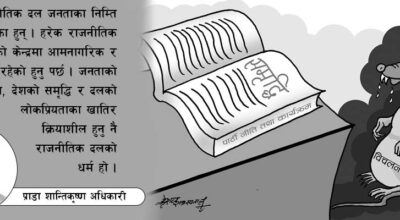 तिक दल जनताका निम्ति
का हुन् । हरेक राजनीतिक
को केन्द्रमा आमनागरिक र
रहेको हुनु पर्छ । जनताको
, देशको समृद्धि र दलको
लोकप्रियताका खातिर
क्रियाशील हुनु नै
राजनीतिक दलको
धर्म हो ।
प्राडा शान्तिकृष्ण अधिकारी
समृद्धि
पार्टी नीति तथा कार्यक्रम
विचलन